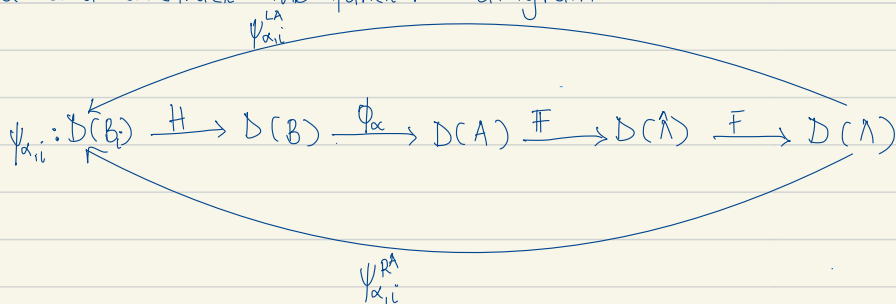 diagram
ψ_{α,i}^{LA}
ψ_{α,i} : D(B_i) —H→ D(B) —ϕ_α→ D(A) —𝔽→ D(Λ̂) —F→ D(Λ)
ψ_{α,i}^{RA}